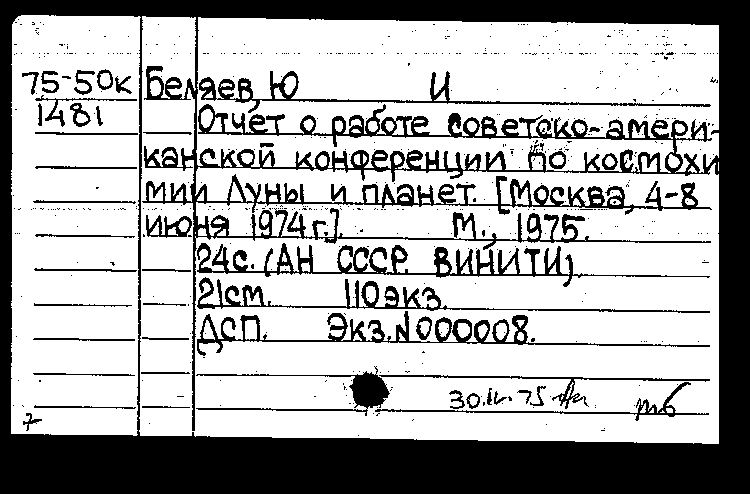 75-50к Беляев, Ю И
1481 Отчет о работе советско-амери-
канской конференции по космохи
мии Луны и планет. [Москва, 4-8
июня 1974 г.]. М., 1975.
24с. (АН СССР. ВИНИТИ).
21см. 110экз.
ДСП. Экз.N000008.
75
7